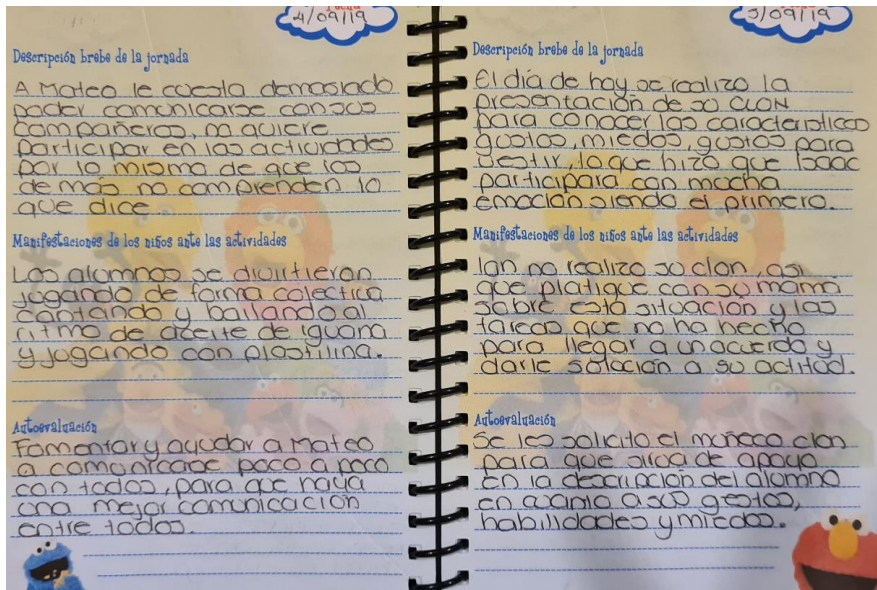 Fecha
4/09/19
Descripción brebe de la jornada
A Mateo le cuesta demasiado
poder comunicarse con sus
compañeros, no quiere
participar en las actividades
por lo mismo de que los
demás no comprenden lo
que dice
Manifestaciones de los niños ante las actividades
Los alumnos se divirtieron
jugando de forma colectiva
cantando y bailando al
ritmo de aceite de iguana
y jugando con plastilina.
Autoevaluación
Fomentar y ayudar a Mateo
a comunicarse poco a poco
con todos, para que haya
una mejor comunicación
entre todos.
5/09/19
Descripción brebe de la jornada
El día de hoy se realizo la
presentación de su CLON
para conocer las caracteristicas
gustos, miedos, gustos para
vestir, lo que hizo que Isaac
participara con mucha
emoción siendo el primero.
Manifestaciones de los niños ante las actividades
Ian no realizo su clon, asi
que platique con su mamá
sobre esta situación y las
tareas que no ha hecho
para llegar a un acuerdo y
darle solución a su actitud.
Autoevaluación
Se les solicito el muñeco clon
para que sirva de apoyo
en la descripción del alumno
en cuanto a sus gustos,
habilidades y miedos.